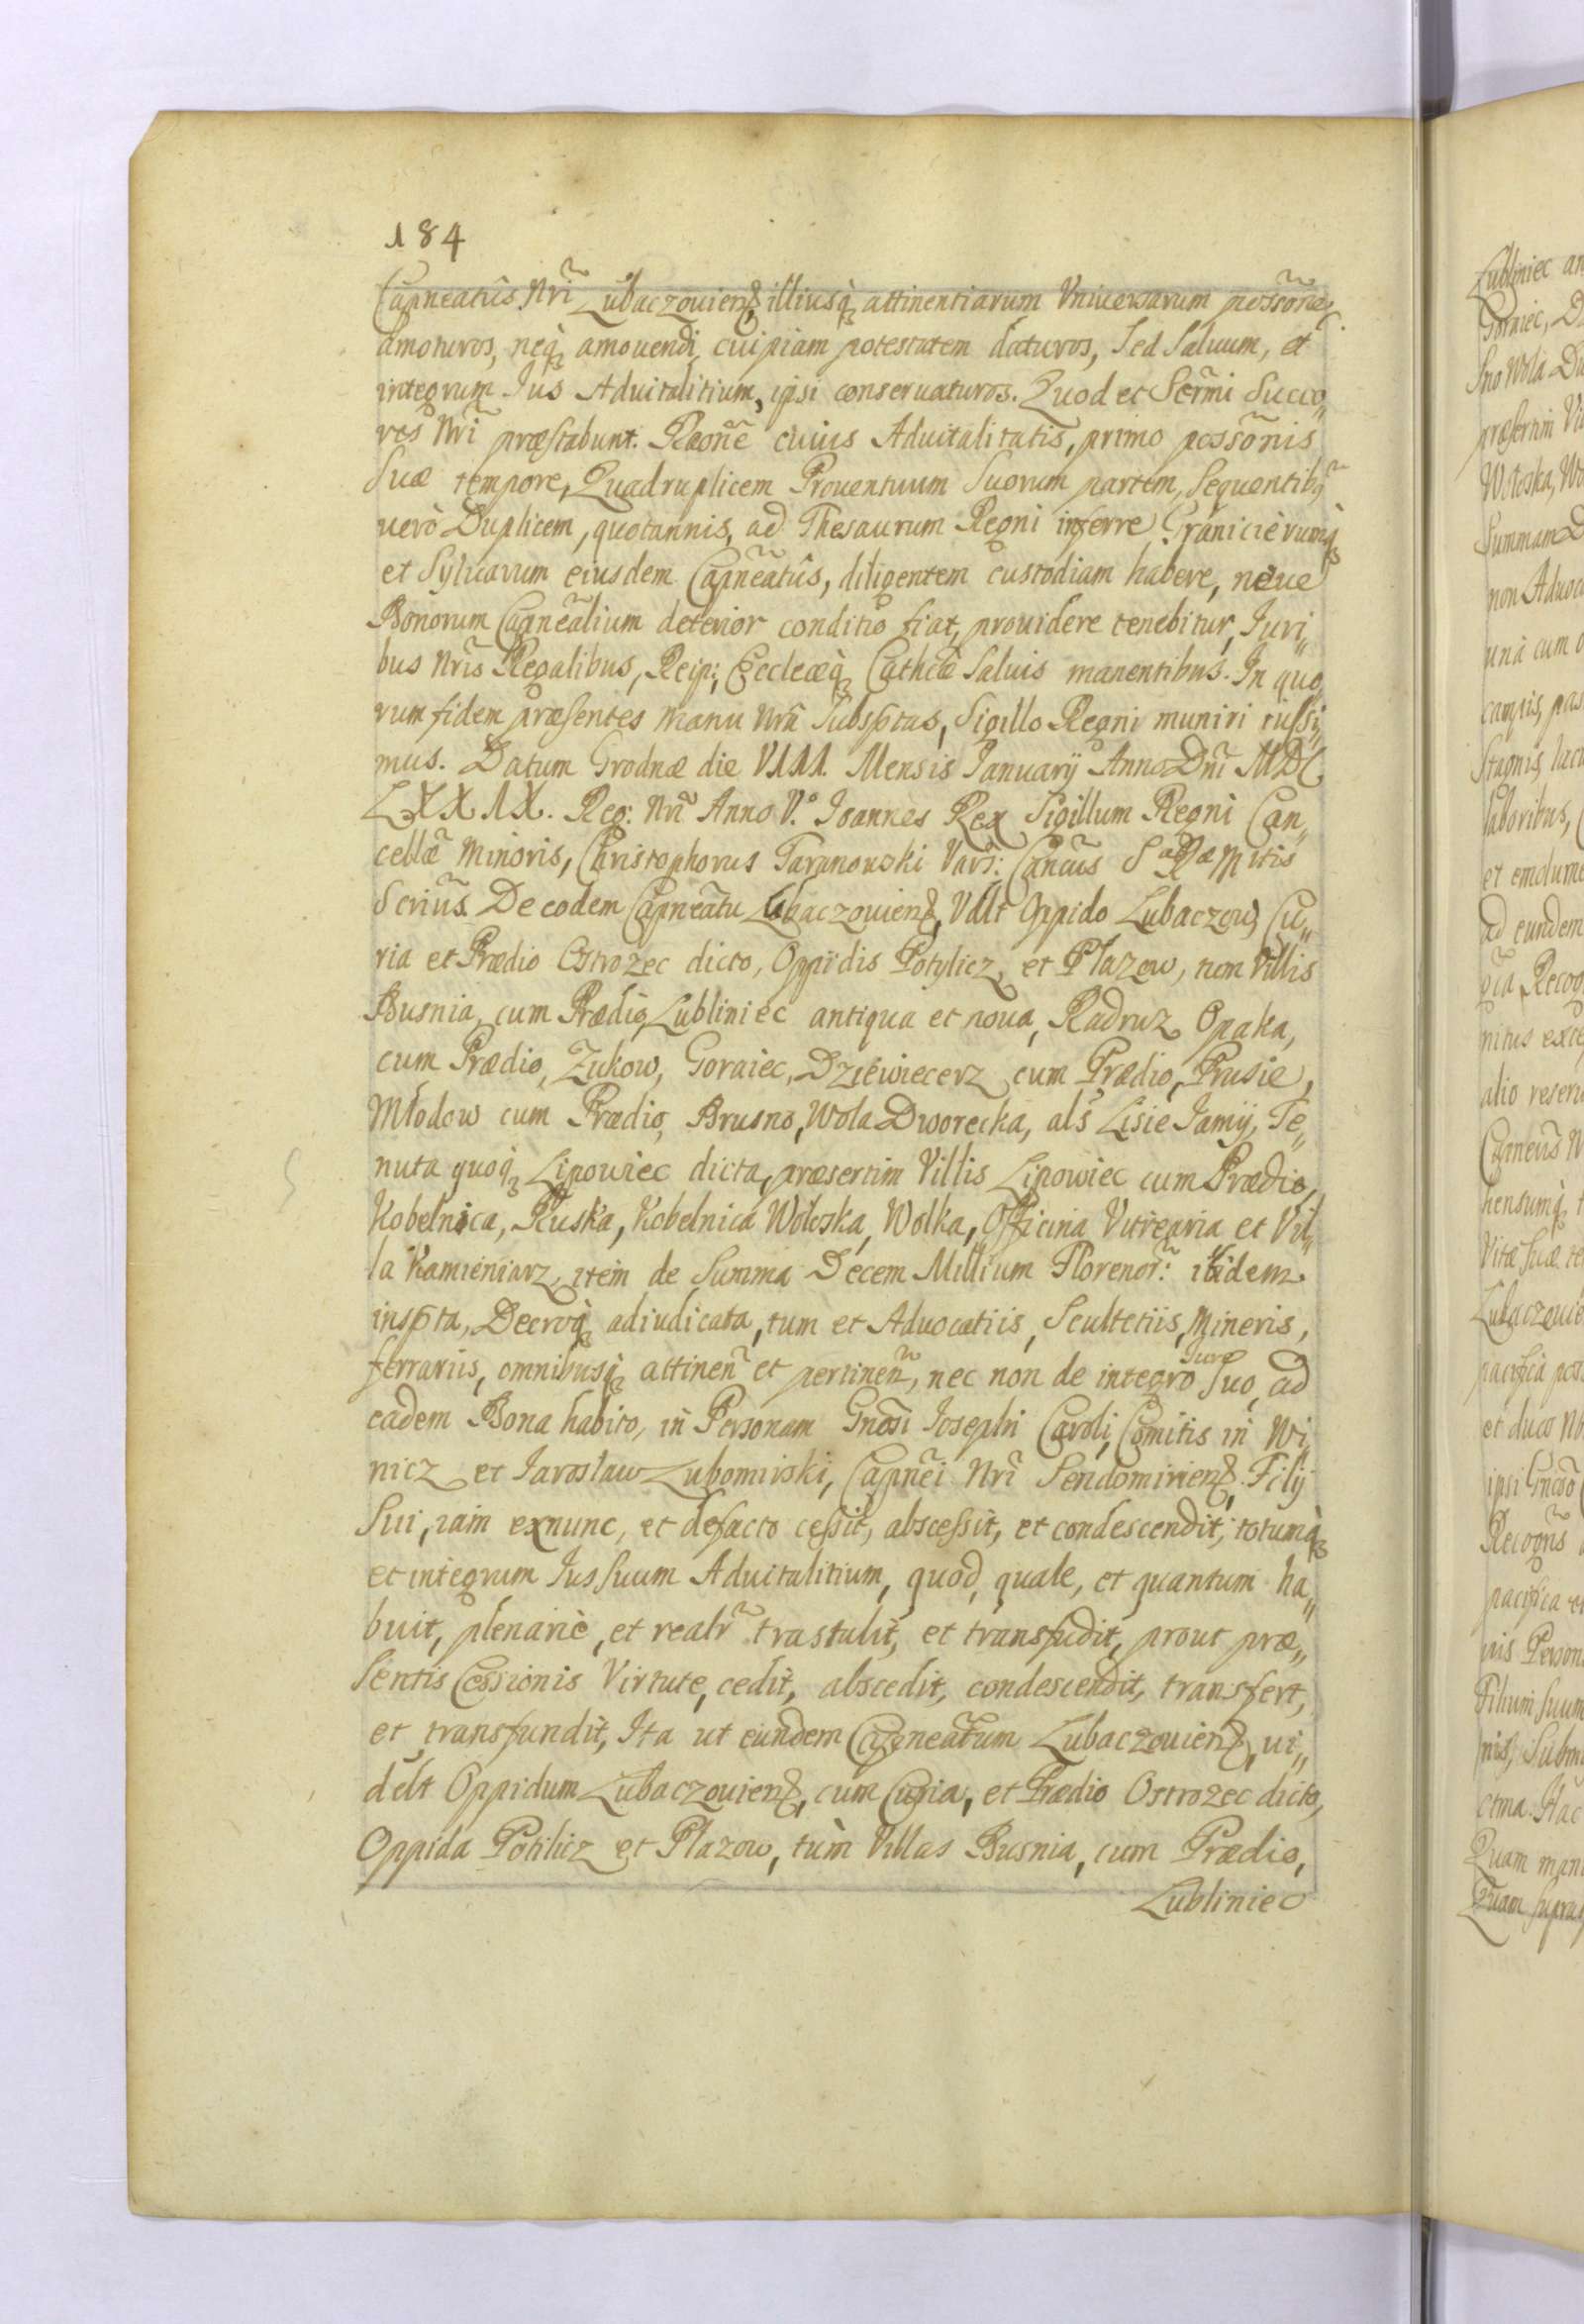 184
Capneatûs Nrĩ Lubaczouiens, illiusq attinentiarum Vniuersarum possone
amoturos, neq amouendi cuipiam potestatem daturos, Sed Saluum, et
integrum Ius Aduitalitium, ipsi conseruaturos. Quod et Sermi Succo„
res Nri præstabunt. Raone cuius Aduitalitatis, primo possonis
Suæ tempore, Quadruplicem Prouentuum Suorum partem, Sequentibq
uerò Duplicem, quotannis, ad Thesaurum Regni inferre Granicierumq
et Syluarum eiusdem Capneatûs, diligentem custodiam habere, neue
Bonorum Capnealium deterior conditio fiat, prouidere tenebitur, Iuri„
bus Nris Regalibus, Reip:, Eccleæq Cathcæ Saluis manentibus. In quo„
rum fidem præsentes manu Nra Subsptas, Sigillo Regni muniri iussi„
mus. Datum Grodnæ die VIII. Mensis Ianuarij Anno Dni MDC
LXXIX. Reg: Nri Anno V.º Ioannes Rex Sigillum Regni Can„
cellæ Minoris, Christophorus Taranowski Vars: Cancus S RæMttis
Scrius. De eodem Capneatu Lubaczouiens, Vdlt Oppido Lubaczow, Cu„
ria et Prædio Ostrozec dicto, Oppidis Potylicz, et Płazow, tum Villis
Busnia, cum Prædio, Lubliniec antiqua et noua, Radruz, Opaka,
cum Prædio, Zukow, Goraiec, Dziewiecerz cum Prædio, Prusie,
Młodow cum Prædio, Brusno, Wola Dworecka, als Lisie Iamy, Te„
nuta quoq Lipowiec dicta, præsertim Villis Lipowiec cum Prædio,
Kobelnica, Ruska, Kobelnica Wołoska, Wolka, Officina Vitrearia et Vil„
la Kamieniarz, item de Summa Decem Millium Florenor: ibidem
inspta, Decretoq adiudicata, tum et Aduocatiis, Scultetiis, Mineris,
ferrariis, omnibusq attinen et pertinen, nec non de integro Iure Suo, ad
eadem Bona habito, in Personam Gnosi Iosephi Caroli, Comitis in Wi„
nicz et Iarosław Lubomirski, Capnei Nri Sendomiriens, Filij
Sui, iam exnunc, et defacto cessit, abscessit, et condescendit, totumq
et integrum Ius Suum Aduitalitium, quod, quale, et quantum ha„
buit, plenariè, et realr trastulit, et transfudit, prout præ„
sentis Cessionis Virtute, cedit, abscedit, condescendit, transfert,
et transfundit, Ita ut eundem Capneatum Lubaczouiens, ui„
delt Oppidum Lubaczouiens, cum Curia, et Prædio Ostrozec dicto,
Oppida Potilicz et Płazow, tùm Villas Busnia, cum Prædio,
Lubliniec